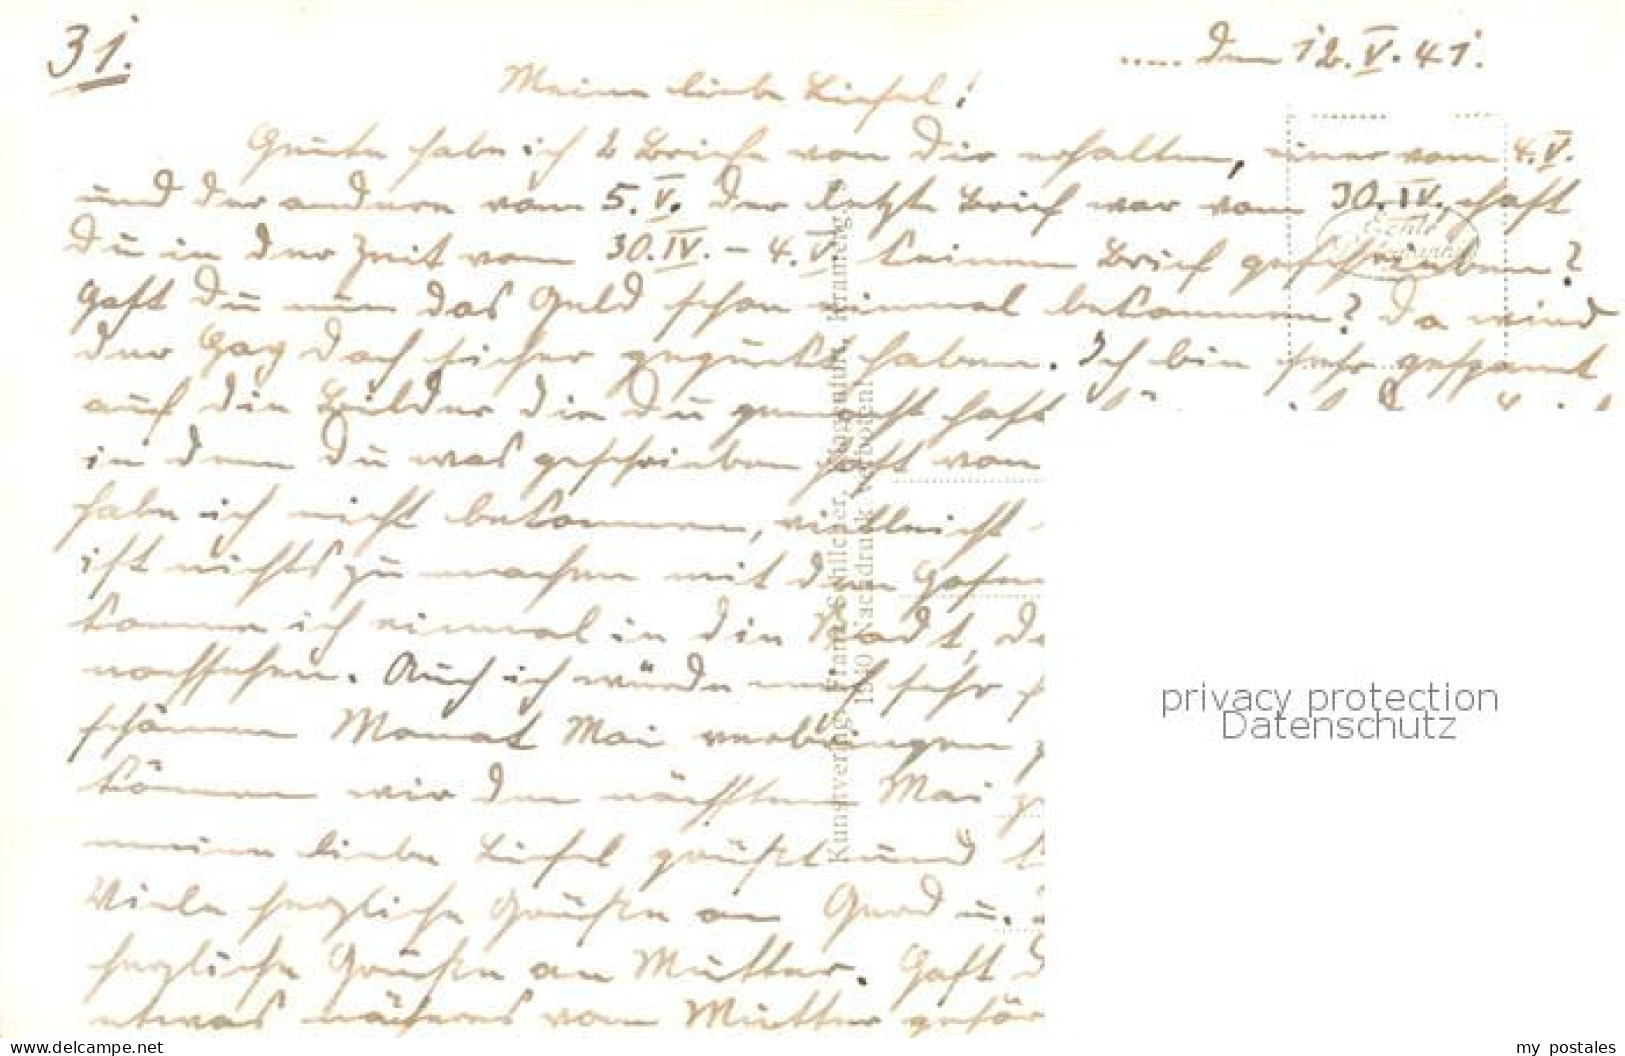 31.
..... den 12.V.41.
Meine liebe Liesel!
Heute habe ich 2 Briefe von Dir erhalten, einer vom 4.V.
und der andere vom 5.V. Der letzte Brief war vom 30.IV., hast
Du in der Zeit vom 30.IV. – 4.V. keinen Brief geschrieben?
Hast Du nun das Geld schon einmal bekommen? Da wird
der Hag doch sicher geguckt haben. Ich bin sehr gespannt
auf die Bilder die Du gemacht hast
in dem Du was geschrieben hast von
habe ich nicht bekommen, vielleicht
ist nichts zu machen mit den
komme ich einmal in die Stadt, da
nachsehen. Auch ich würde noch sehr
schönen Monat Mai verbringen
können wir den nächsten Mai
meine liebe Liesel grüßt und
Viele herzliche Grüße an Gerd u.
herzliche Grüße an Mutter. Hast
etwas näheres von Mutter gehör
Echte
Kunstverlag Franz Schilcher, Klagenfurt, Kramerg.
1940 Nachdruck verboten!
privacy protection
Datenschutz
www.delcampe.net
my_postales